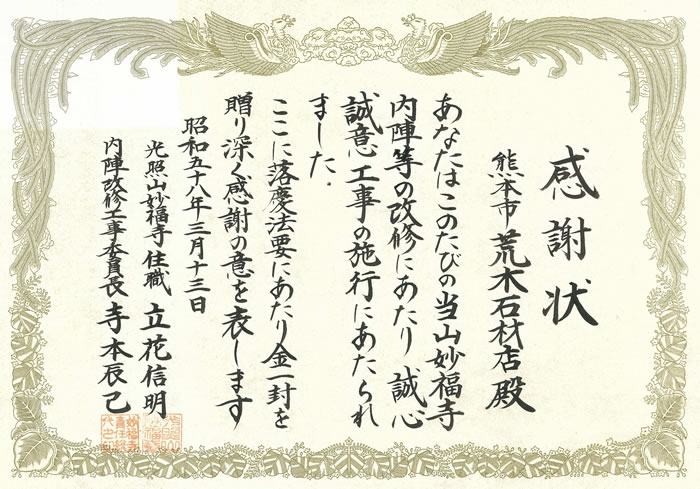 感謝状
熊本市 荒木石材店殿
あなたはこのたびの当山妙福寺
内陣等の改修にあたり誠心
誠意工事の施行にあたられ
ました.
ここに落慶法要にあたり金一封を
贈り深く感謝の意を表します
昭和五十八年三月十三日
光照山妙福寺住職 立花信明
内陣改修工事委員長 寺本辰己